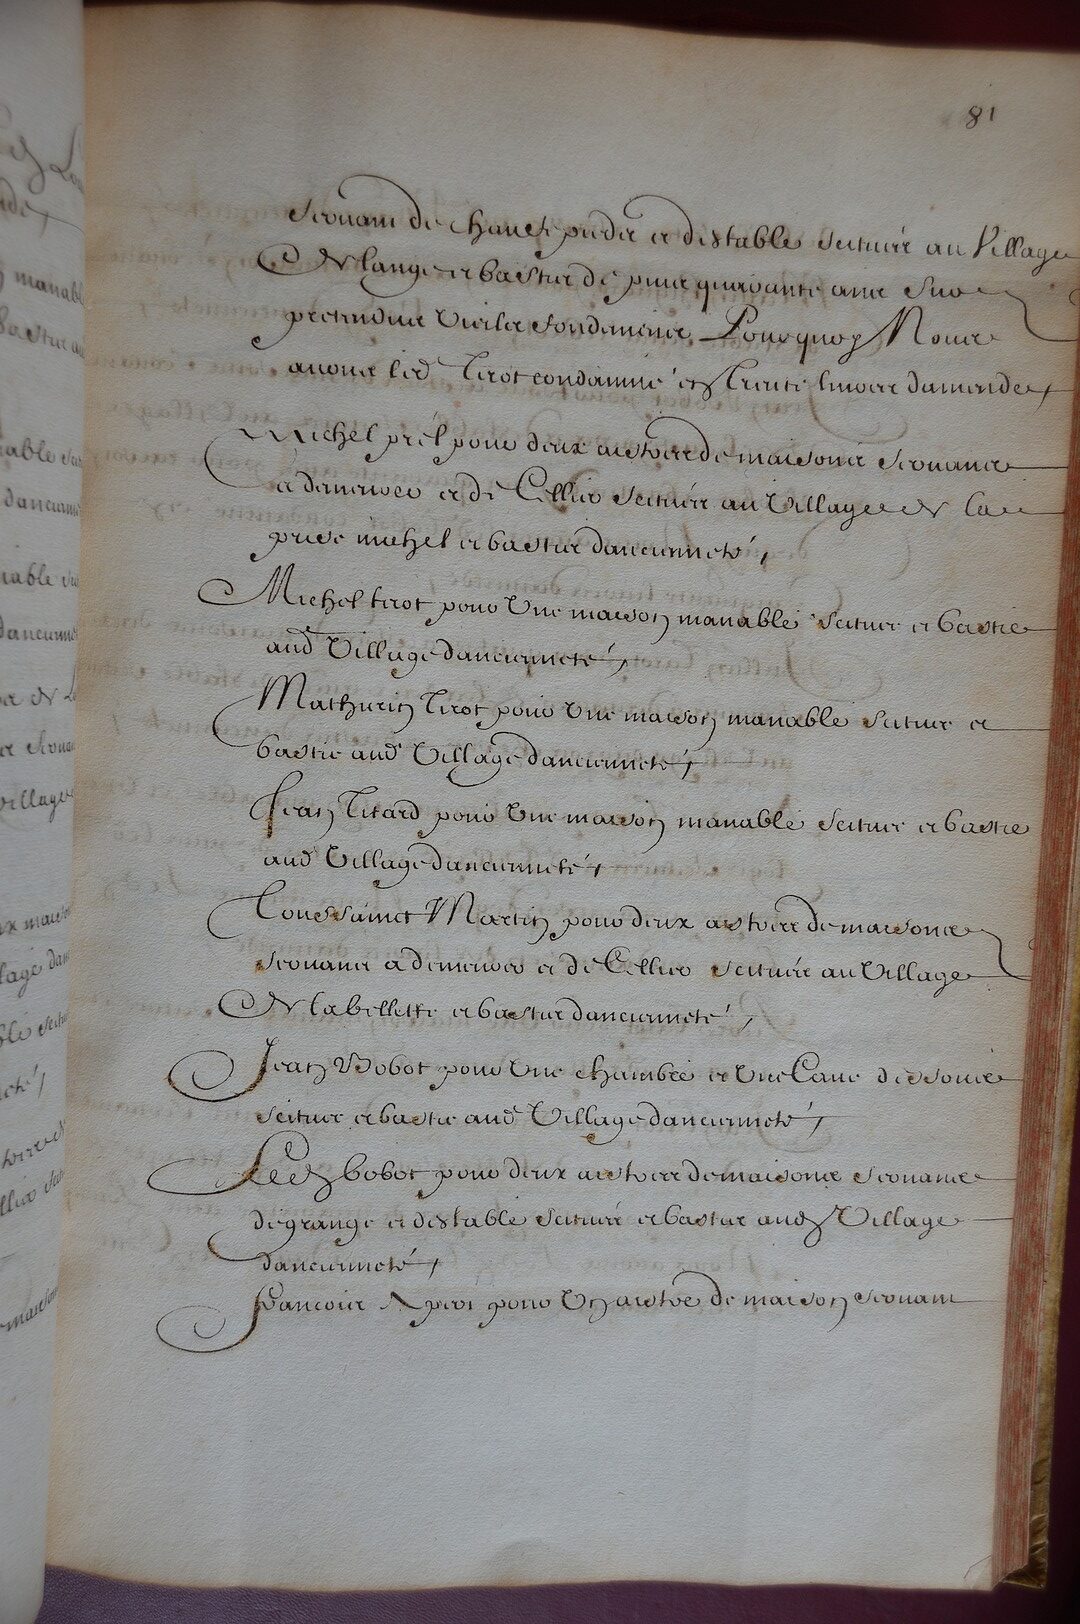 81
servant de chauf piedz et destable scituéz au Village
de lange et bastiz de puis quarante ans sur
pretendus vieilz fondemens, Pourquoy Nous
avons led Tirot condamné en trente livres damende,
Michel prel pour deux astres de maisons servans
a demeurer et de Cellier scituéz au Village de la
prise michel et bastiz dancienneté,
Michel tirot pour Une maison manable scituee et bastie
aud Village dancienneté,
Mathurin Tirot pour Une maison manable scituee et
bastie aud Village dancienneté,
Jean Titard pour Une maison manable scituee et bastie
aud Village dancienneté,
Toussainct Martin pour deux astres de maisons
servans a demeurer et de Cellier scituéz au Village
de labellette et bastiz dancienneté,
Jean Bobot pour Une chambre et Une Cave dessoubz
scituee et bastie aud Village dancienneté,
Led bobot pour deux astres de maisons servans
de grange et destable scituéz et bastiz aud Village
dancienneté,
francois pour Un astre de maison servant